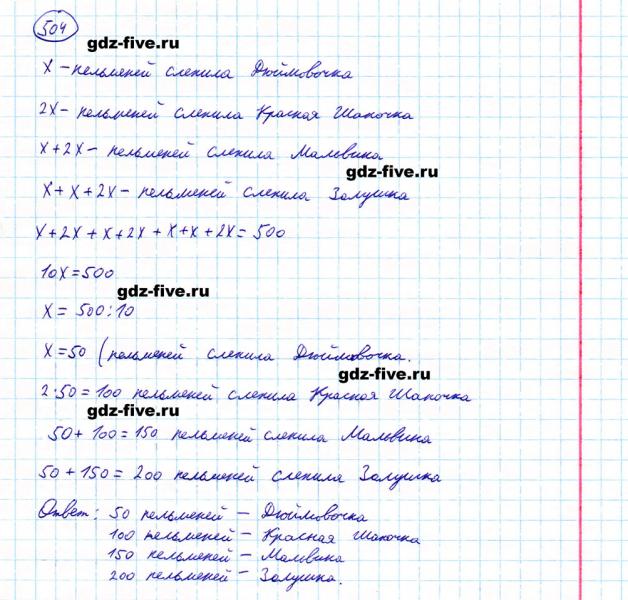 504
gdz-five.ru
x - пельменей слепила Дюймовочка
2x - пельменей слепила Красная Шапочка
x + 2x - пельменей слепила Мальвина
gdz-five.ru
x + x + 2x - пельменей слепила Золушка
x + 2x + x + 2x + x + x + 2x = 500
10x = 500
gdz-five.ru
x = 500 : 10
x = 50 (пельменей слепила Дюймовочка.
gdz-five.ru
2·50 = 100 пельменей слепила Красная Шапочка
gdz-five.ru
50 + 100 = 150 пельменей слепила Мальвина
50 + 150 = 200 пельменей слепила Золушка
Ответ: 50 пельменей - Дюймовочка
100 пельменей - Красная Шапочка
150 пельменей - Мальвина
200 пельменей - Золушка.